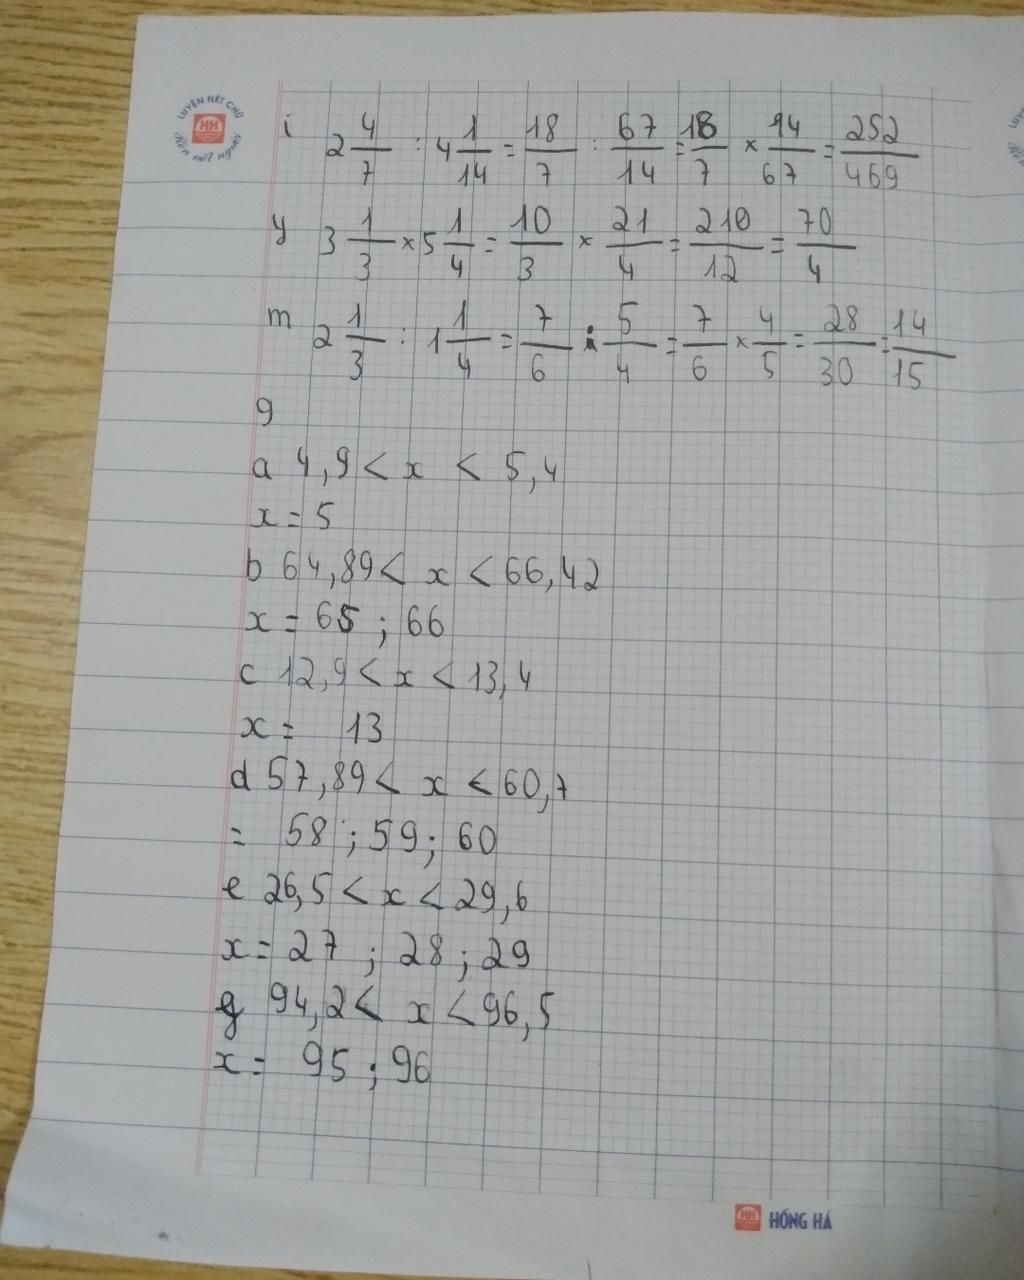 LUYỆN NÉT CHỮ
HH
Rèn nết người
i 2 4/7 : 4 1/14 = 18/7 : 67/14 = 18/7 × 14/67 = 252/469
y 3 1/3 × 5 1/4 = 10/3 × 21/4 = 210/12 = 70/4
m 2 1/3 : 1 1/4 = 7/6 : 5/4 = 7/6 × 4/5 = 28/30 = 14/15
9
a 4,9 < x < 5,4
x = 5
b 64,89 < x < 66,42
x = 65 ; 66
c 12,9 < x < 13,4
x = 13
d 57,89 < x < 60,7
= 58 ; 59 ; 60
e 26,5 < x < 29,6
x = 27 ; 28 ; 29
g 94,2 < x < 96,5
x = 95 ; 96
HH HỒNG HÀ